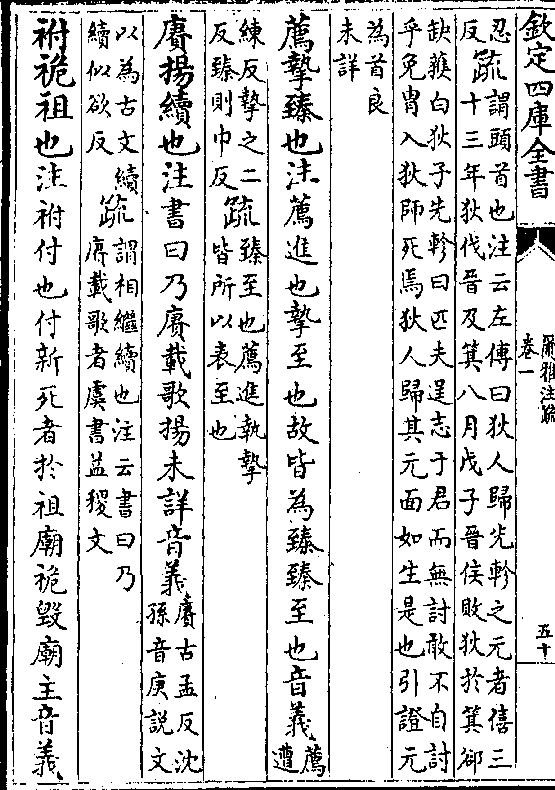 欽定四庫全書
爾雅注疏
卷一
五十
忍
反
疏
謂頭首也注云左傳曰狄人歸先軫之元者僖三
十三年狄伐晉及箕八月戊子晉侯敗狄於箕郤
缺獲白狄子先軫曰匹夫逞志于君而無討敢不自討
乎免胄入狄師死焉狄人歸其元面如生是也引證元
為首良
未詳
薦摯臻也注薦進也摯至也故皆為臻臻至也音義
薦
遭
練反摯之二
反臻則巾反
疏
臻至也薦進執摯
皆所以表至也
賡揚續也注書曰乃賡載歌揚未詳音義
賡古孟反沈
孫音庚説文
以為古文續
續似欲反
疏
謂相繼續也注云書曰乃
賡載歌者虞書益稷文
祔祪祖也注祔付也付新死者於祖廟祪毀廟主音義